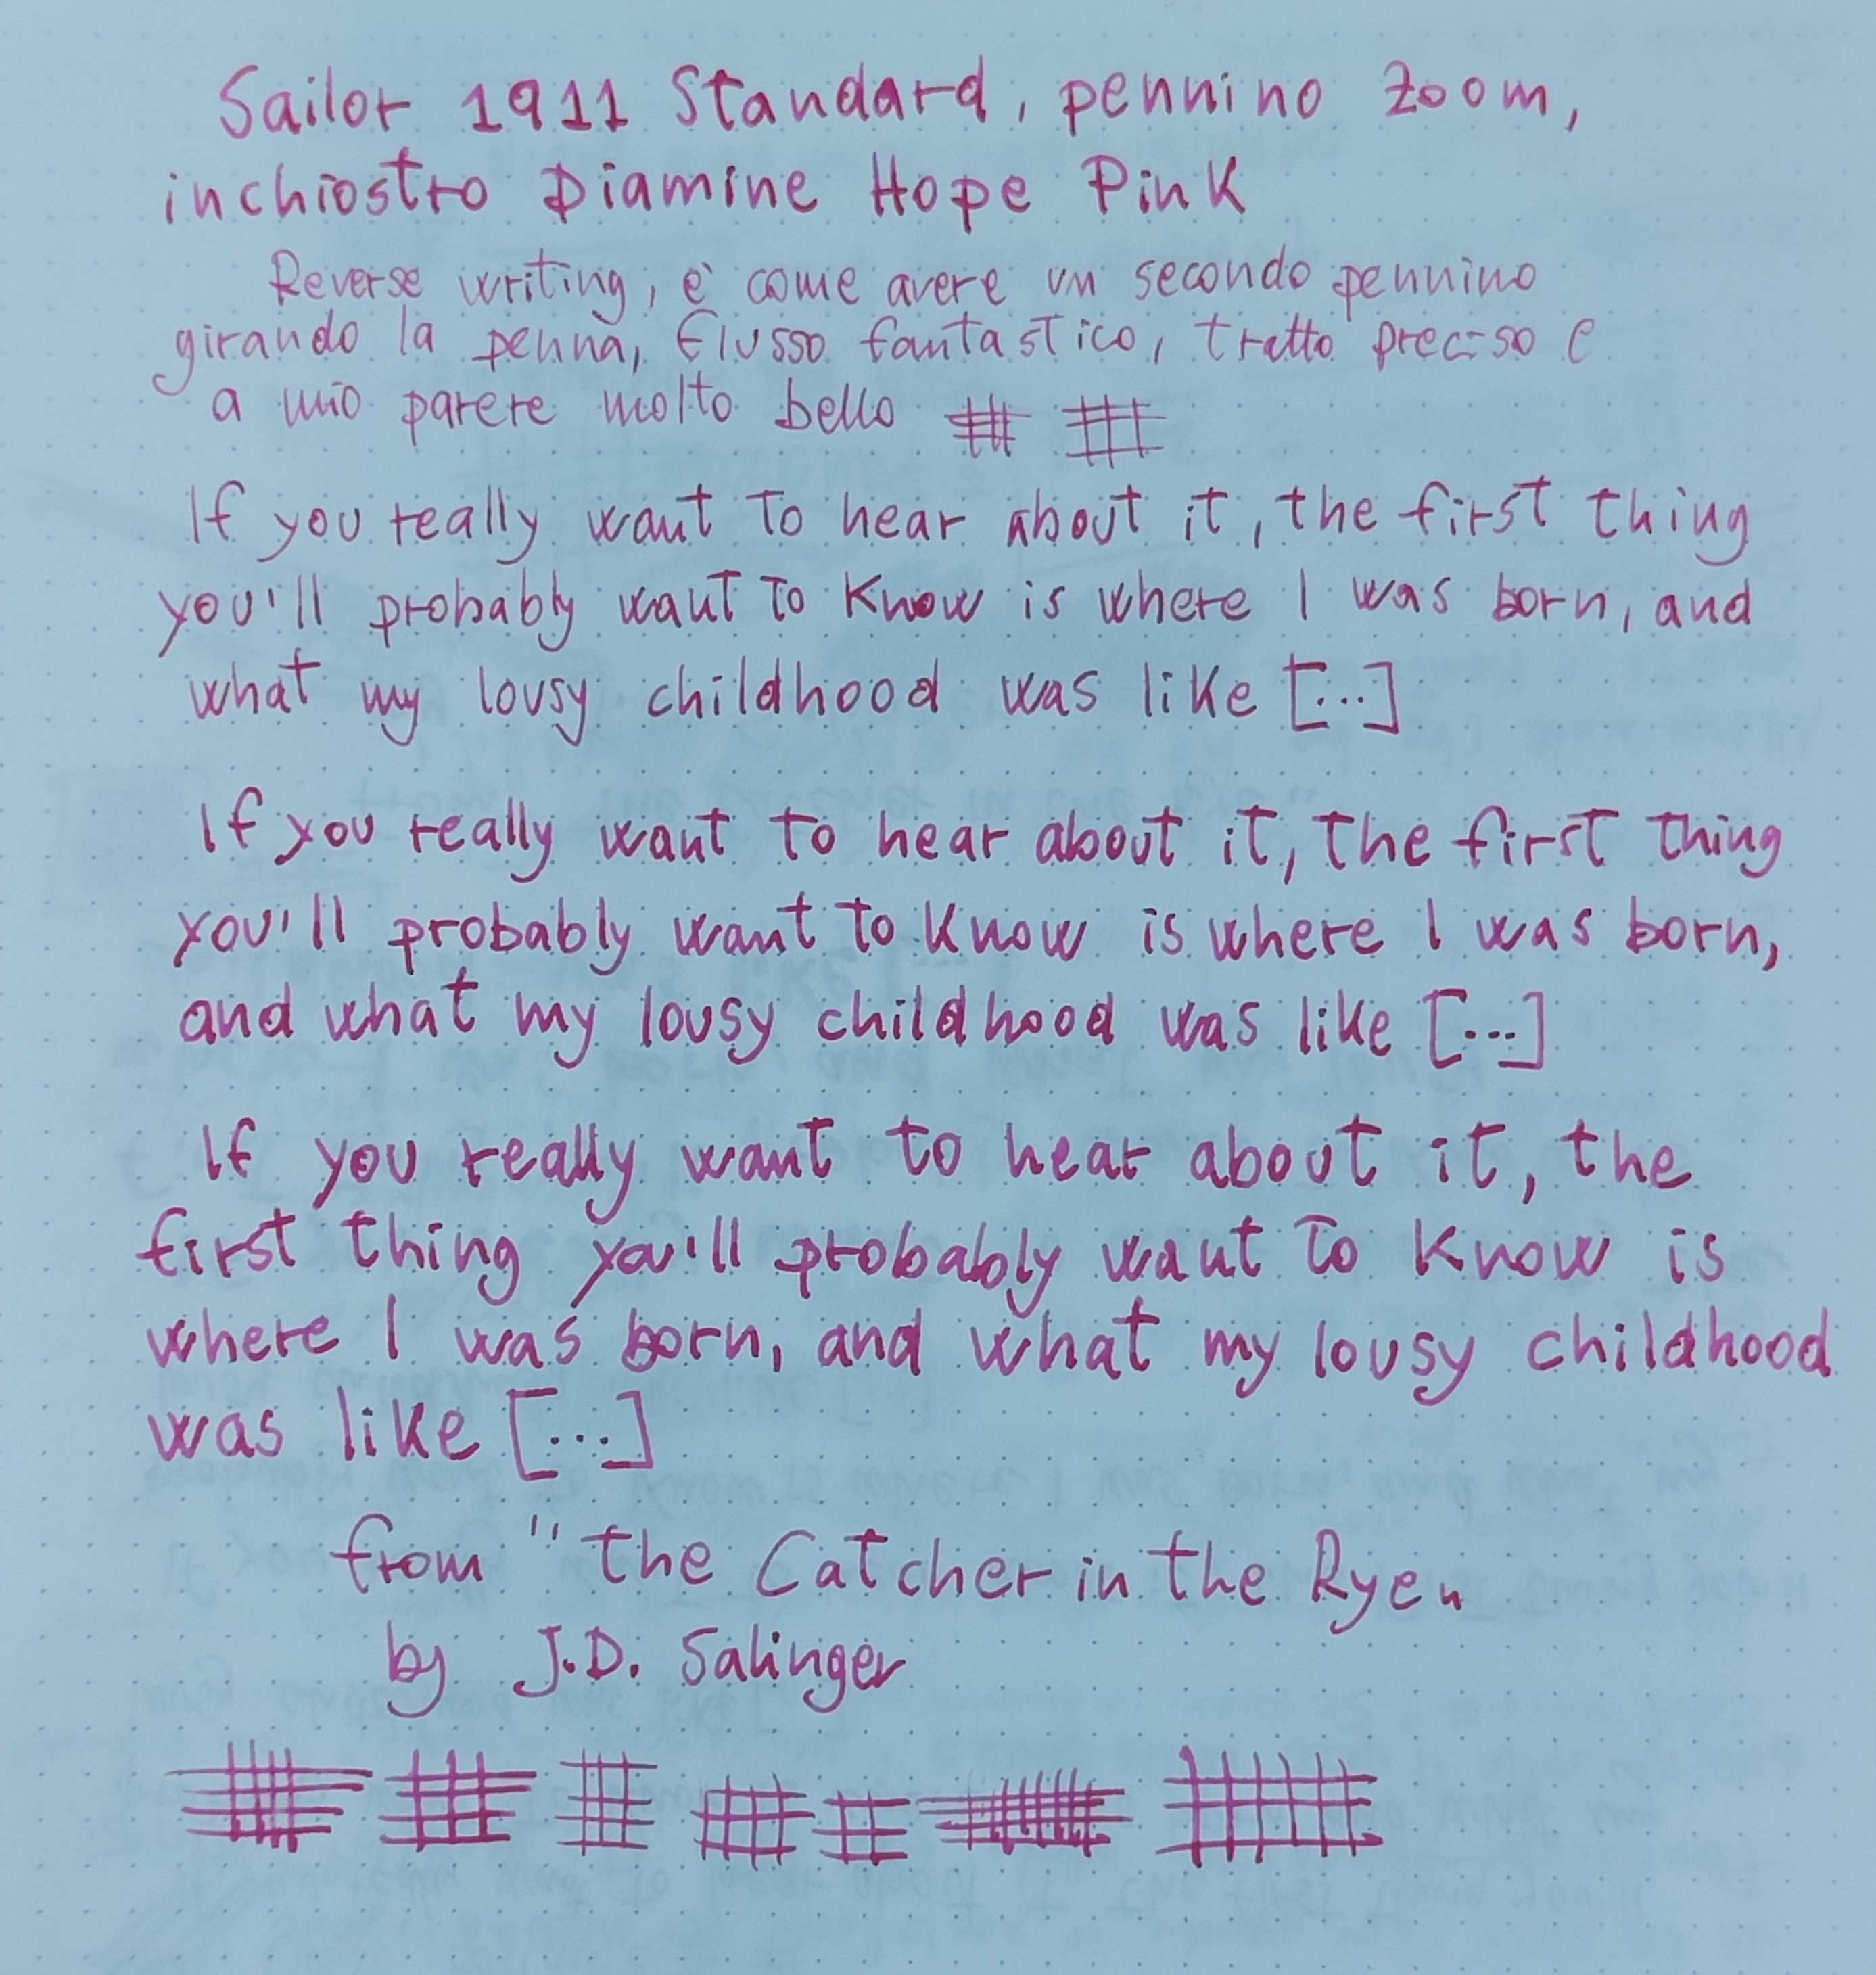 Sailor 1911 Standard, pennino Zoom,
inchiostro Diamine Hope Pink
Reverse writing, è come avere un secondo pennino
girando la penna, flusso fantastico, tratto preciso e
a mio parere molto bello
If you really want to hear about it, the first thing
you'll probably want to know is where I was born, and
what my lousy childhood was like [...]
If you really want to hear about it, the first thing
you'll probably want to know is where I was born,
and what my lousy childhood was like [...]
If you really want to hear about it, the
first thing you'll probably want to know is
where I was born, and what my lousy childhood
was like [...]
from "the Catcher in the Rye"
by J.D. Salinger